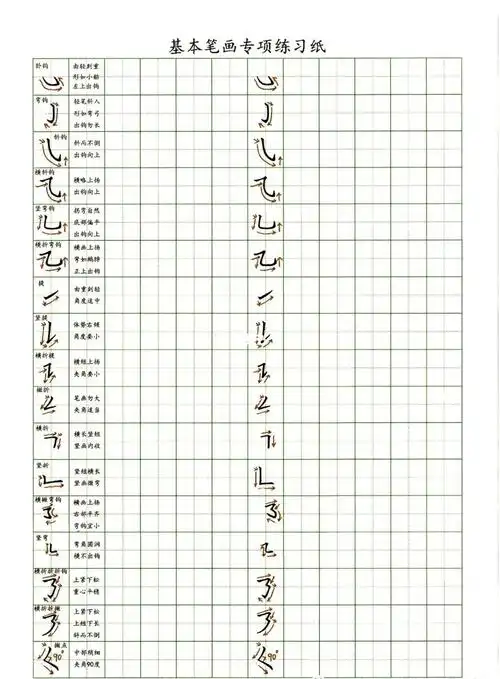 基本笔画专项练习纸
卧钩
由轻到重
形如小船
左上出钩
弯钩
轻笔斜入
形如弯弓
出钩勿长
斜钩
斜而不倒
出钩向上
横斜钩
横略上扬
出钩向上
竖弯钩
拐弯自然
底部偏平
出钩向上
横折弯钩
横画上扬
弯如鹅脖
正上出钩
提
由重到轻
角度适中
竖提
体势右倾
角度要小
横折提
横短上扬
夹角要小
撇折
笔画勿大
夹角适当
横折
横长竖短
竖画内收
竖折
竖短横长
竖画微弯
横撇弯钩
横画上扬
右部平齐
弯钩宜小
竖弯
弯角圆润
横不出钩
横折折折钩
上紧下松
重心平稳
横折折撇
上紧下松
上短下长
斜而不倒
撇点
90°
中部稍细
夹角90度
90°